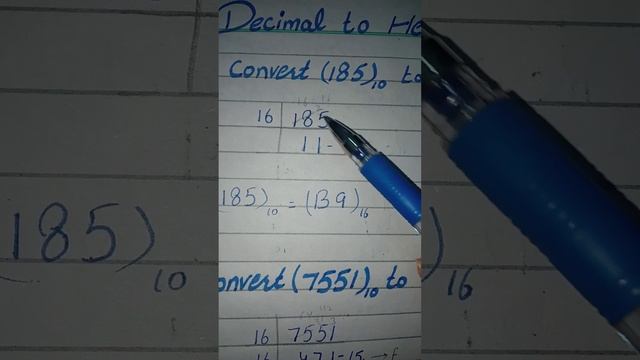 Decimal to He
Convert (185)10 to
16 185
11-
185)10 = (B9)16
onvert (7551)10 to
16 7551
16 471-15→f
185)10
)16